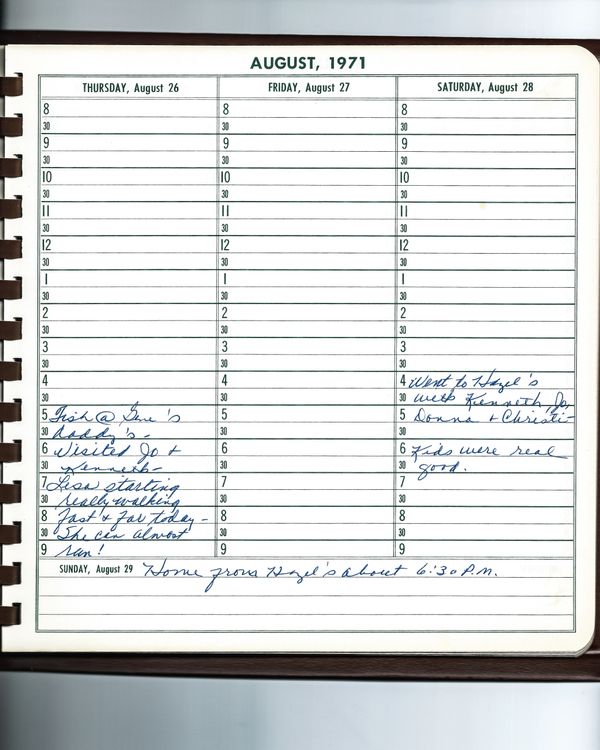 AUGUST, 1971
THURSDAY, August 26
8
30
9
30
10
30
11
30
12
30
1
30
2
30
3
30
4
30
5 Fish @
30 Daddy's -
6 Visited Jo &
30 Kenneth -
7 Lisa starting
30 really walking
8 fast & far today -
30 She can almost
9 run!
FRIDAY, August 27
8
30
9
30
10
30
11
30
12
30
1
30
2
30
3
30
4
30
5
30
6
30
7
30
8
30
9
SATURDAY, August 28
8
30
9
30
10
30
11
30
12
30
1
30
2
30
3
30
4 Went to Hazel's
30 with Kenneth, Jo,
5 Donna & Christi -
30
6 Kids were real
30 good.
7
30
8
30
9
SUNDAY, August 29 Home from Hazel's about 6:30 P.M.